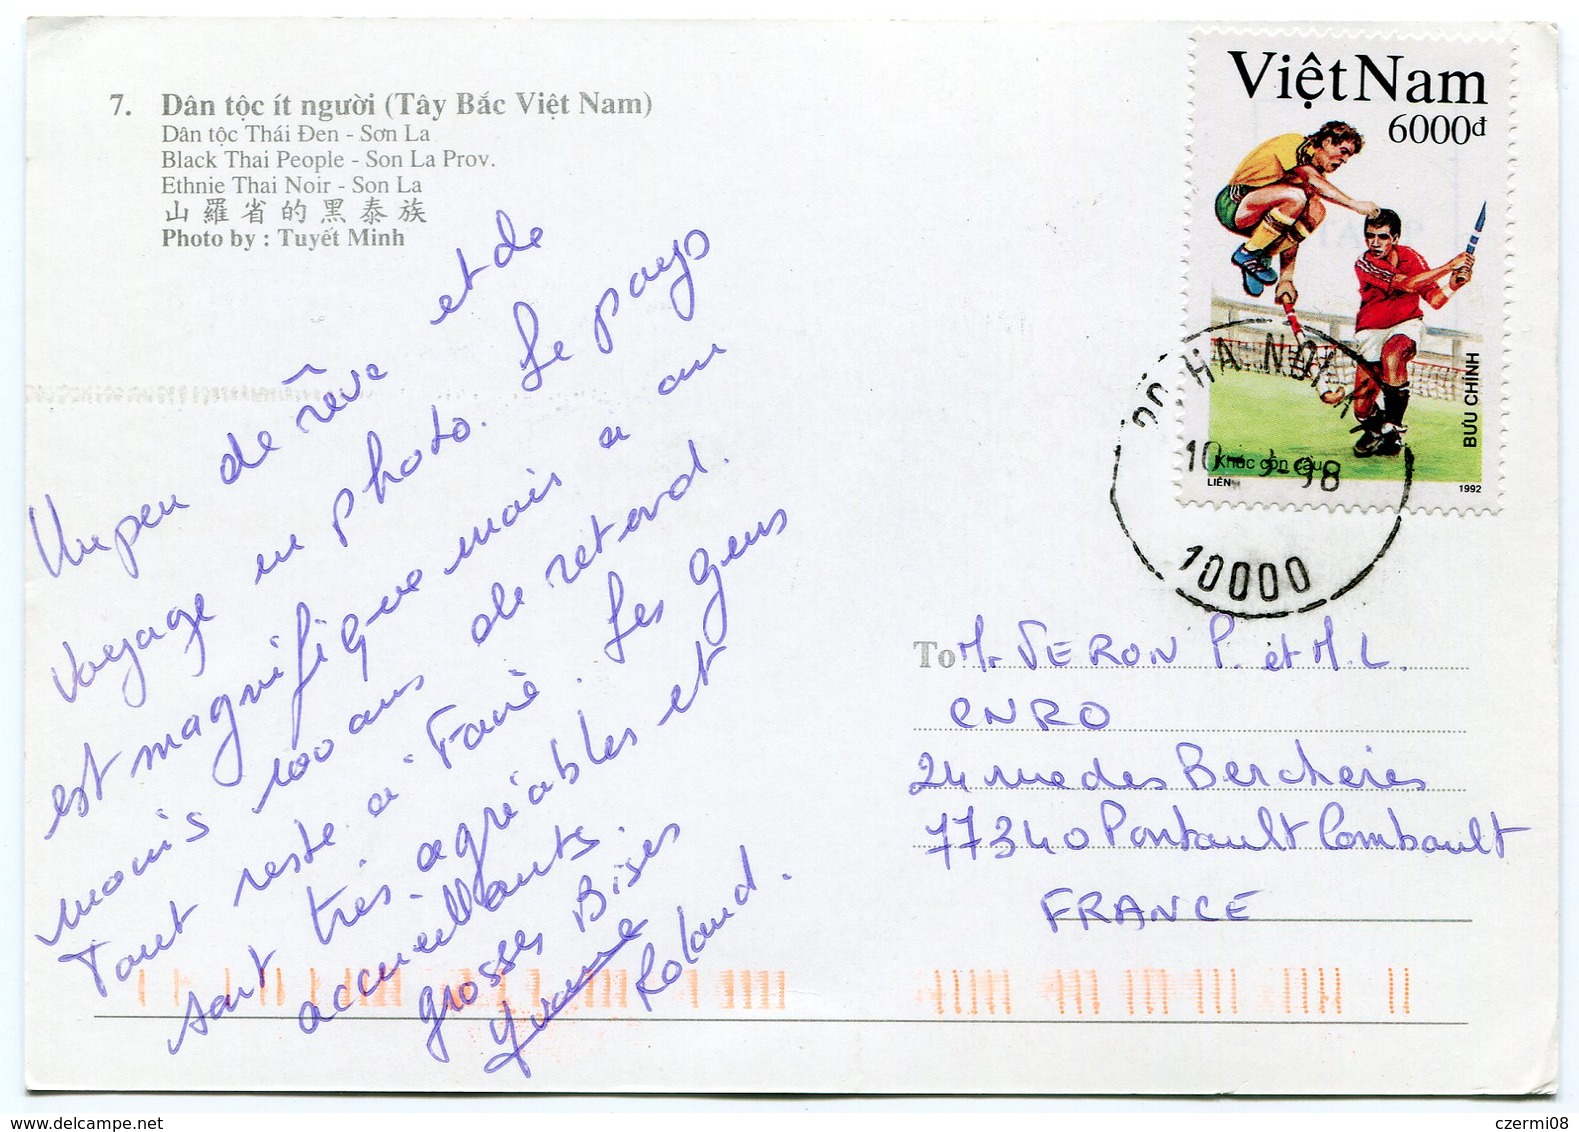 7. Dân tộc ít người (Tây Bắc Việt Nam)
Dân tộc Thái Đen - Sơn La
Black Thai People - Son La Prov.
Ethnie Thai Noir - Son La
山羅省的黑泰族
Photo by : Tuyết Minh
Việt Nam
6000đ
BƯU CHÍNH
Khúc côn cầu
LIÊN
1992
HA NOI
10000
Un peu de rêve et de
voyage en photo. Le pays
est magnifique mais a au
moins 100 ans de retard.
Tout reste à Faire. Les gens
sont très agréables et
accueillants.
grosses Bises
Yvonne Roland.
To Mr VERON P. et M.L.
CNRO
24 rue des Bercheres
77340 Pontault Combault
FRANCE
www.delcampe.net
czermi08